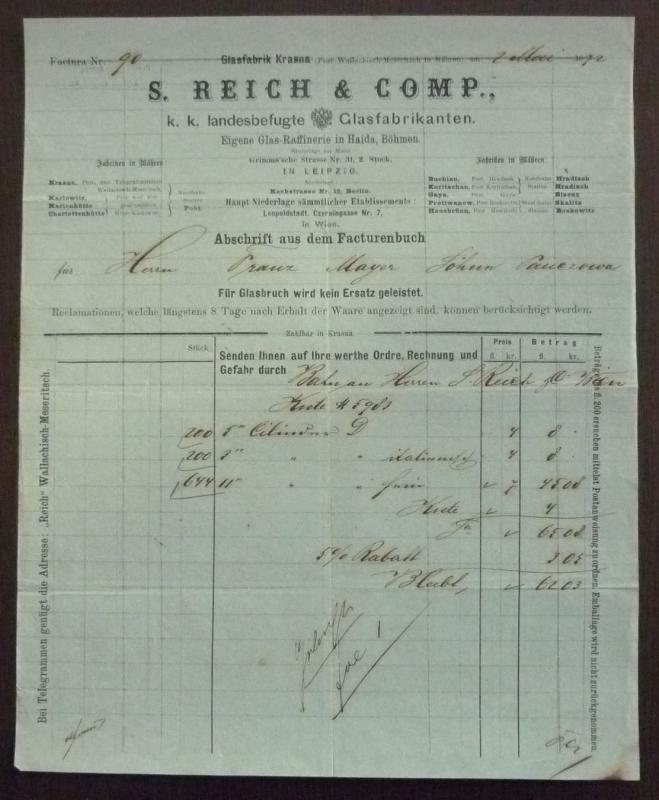 Factura Nr. 90 Glasfabrik Krasna (Post Wallachisch-Meseritsch in Mähren) am 2 Mai 1892
S. REICH & COMP.,
k. k. landesbefugte Glasfabrikanten.
Eigene Glas-Raffinerie in Haida, Böhmen.
Niederlage zur Messe
Grimma'sche Strasse Nr. 31, 2. Stock.
IN LEIPZIG.
Niederlage
Kochstrasse Nr. 12, Berlin.
Haupt-Niederlage sämmtlicher Etablissements:
Leopoldstadt, Czerningasse Nr. 7,
in Wien.
Fabriken in Mähren
Krasna, Post- und Telegrafenstation
Wallachisch-Meseritsch,
Karlowitz,
Marienhütte
Charlottenhütte
Pohl.
Fabriken in Mähren
Buchlau, Post Hradisch Hradisch
Koritschan, Post Koritschan, Hradisch
Gaya, Post Gaya Bisenz
Protiwanow, Skalitz
Hausbrünn, Boskowitz
Abschrift aus dem Facturenbuch
für Herrn Franz Mayer Söhne Panczowa
Für Glasbruch wird kein Ersatz geleistet.
Reclamationen, welche längstens 8 Tage nach Erhalt der Waare angezeigt sind, können berücksichtigt werden.
Zahlbar in Krasna.
Stück Preis Betrag
fl. kr. fl. kr.
Senden Ihnen auf Ihre werthe Ordre, Rechnung und
Gefahr durch Bahn an Herren S. Reich & C Wien
Kiste # 5983
200 5''' Cilinder D 4 8
200 3''' " " 4 8
644 11''' " " fein 7 45 08
Kiste 4
65 08
5% Rabatt 3 05
Bleibt, 62 03
Bei Telegrammen genügt die Adresse: „Reich" Wallachisch-Meseritsch.
Beträge bis fl. 200 ersuchen mittelst Postanweisung zu ordnen. Emballage wird nicht zurückgenommen.